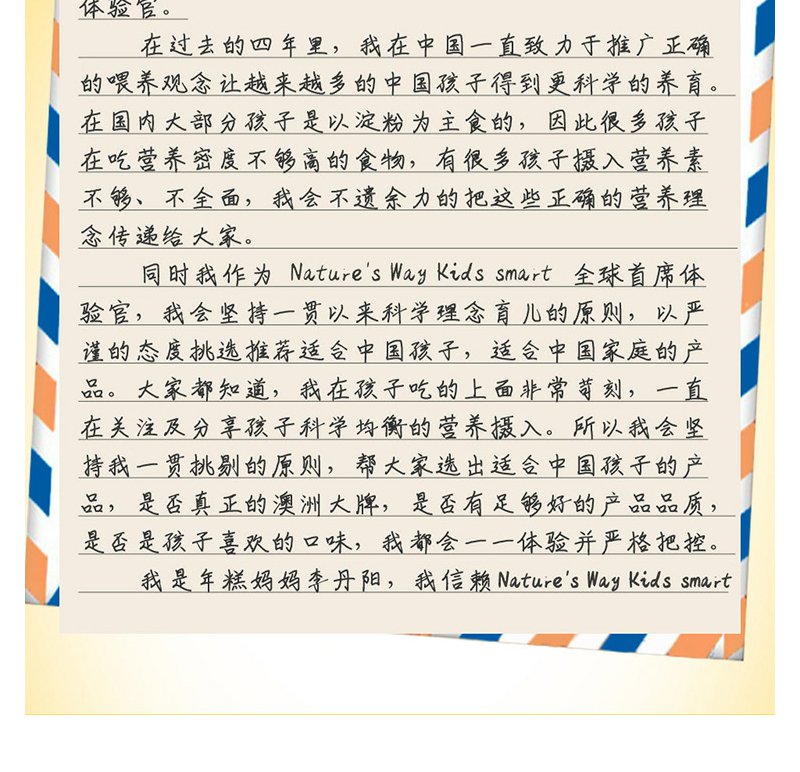 体验官。
在过去的四年里，我在中国一直致力于推广正确
的喂养观念让越来越多的中国孩子得到更科学的养育。
在国内大部分孩子是以淀粉为主食的，因此很多孩子
在吃营养密度不够高的食物，有很多孩子摄入营养素
不够、不全面，我会不遗余力的把这些正确的营养理
念传递给大家。
同时我作为 Nature's Way Kids smart 全球首席体
验官，我会坚持一贯以来科学理念育儿的原则，以严
谨的态度挑选推荐适合中国孩子，适合中国家庭的产
品。大家都知道，我在孩子吃的上面非常苛刻，一直
在关注及分享孩子科学均衡的营养摄入。所以我会坚
持我一贯挑剔的原则，帮大家选出适合中国孩子的产
品，是否真正的澳洲大牌，是否有足够好的产品品质，
是否是孩子喜欢的口味，我都会一一体验并严格把控。
我是年糕妈妈李丹阳，我信赖Nature's Way Kids smart